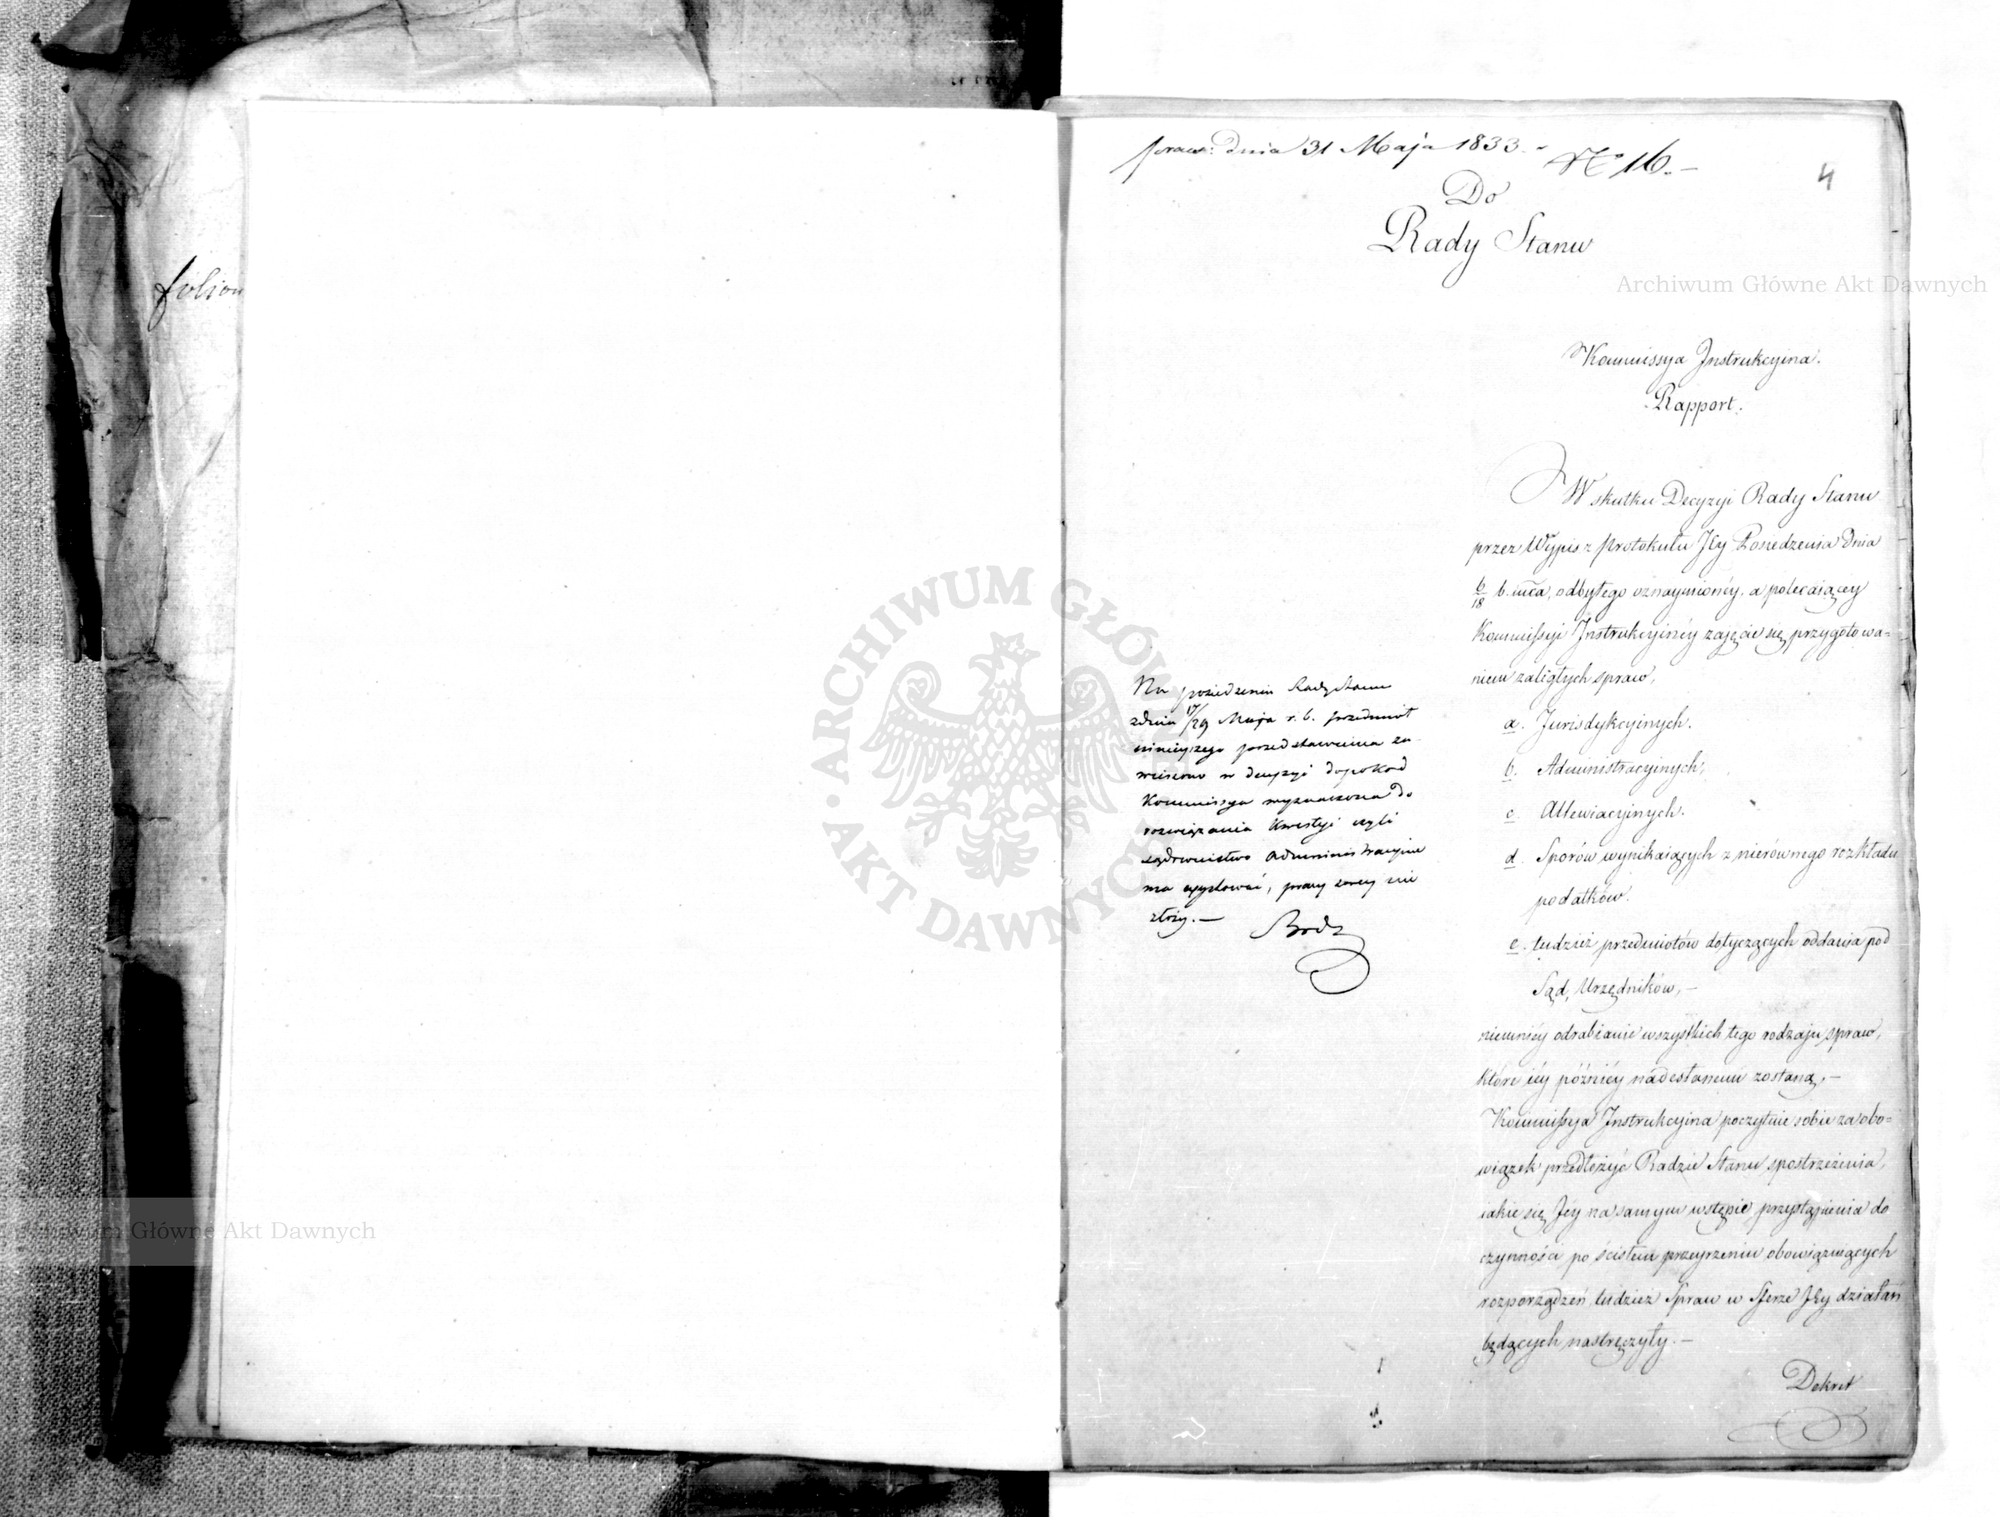 folion
praes: dnia 31 Maja 1833. - No 16. -
4
Do
Rady Stanu
Archiwum Główne Akt Dawnych
Kommissya Instrukcyina.
Rapport.
W skutku Decyzyi Rady Stanu
przez Wypis z Protokułu Jéy Posiedzenia dnia
6/18 b. mca, odbytego oznaymionéy, a polecaiącéy
Kommissyi Instrukcyinéy zajęcie się przygotowa=
niem zaległych spraw,
a. Jurisdykcyinych.
b. Administracyinych,
c. Allewiacyinych.
d. Sporów wynikaiących z nierównego rozkładu
podatków.
e. tudzież przedmiotów dotyczących oddania pod
Sąd, Urzędników, -
niemniéy odrabianie wszystkich tego rodzaju spraw,
które iéy późniéy nadesłanemi zostaną, -
Kommissya Instrukcyina poczytuie sobie za obo=
wiązek przedłożyć Radzie Stanu spostrzeżenia,
iakie się Jéy na samym wstępie przystąpienia do
czynności po ścisłem przeyrzeniu obowiązuiących
rozporządzeń, tudzież Spraw w Sferze Jéy działań
będących nastręczyły. -
Dekret
Na posiedzeniu Rady Stanu
z dnia 17/29 Maja r. b. przedmiot
ninieyszego przedstawienia za-
wieszono w decyzyi dopokąd
Kommissya wyznaczona do
rozwiązania kwestyi czyli
sądownictwo administracyine
ma exystować, pracy swey nie
złoży. -
ARCHIWUM GŁÓWNE AKT DAWNYCH
Archiwum Główne Akt Dawnych